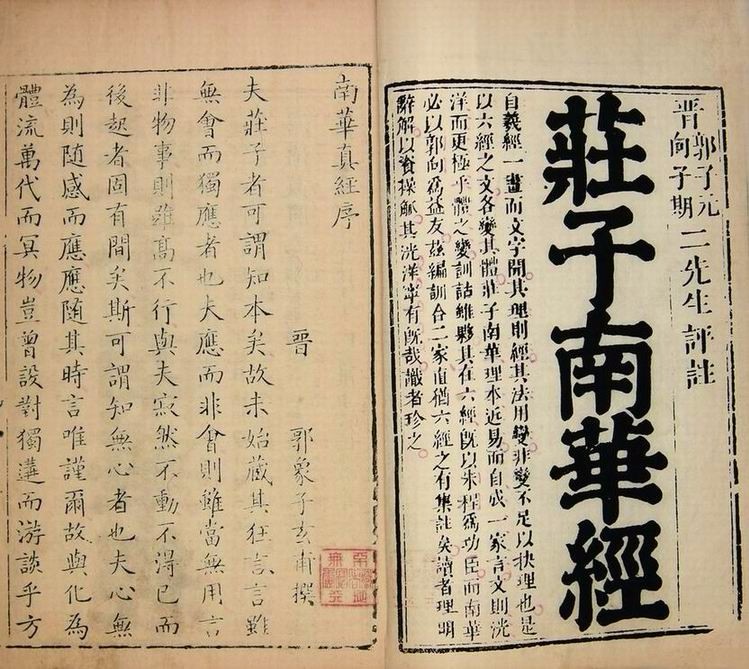 晋郭子元向子期二先生評註
莊子南華經
自羲經一畫而文字開其理則經其法用變非變不足以抉理也是
以六經之文各變其體莊子南華理本近易而自成一家言文則洸
洋而更極乎體之變訓詁雖夥其在六經旣以朱程爲功臣而南華
必以郭向爲益友玆編訓合二家直猶六經之有集註矣讀者理明
辭解以資操觚其洸洋寧有旣哉識者珍之
南華真經序
晋 郭象子玄甫撰
夫莊子者可謂知本矣故未始藏其狂言言雖
無會而獨應者也夫應而非會則雖當無用言
非物事則雖高不行與夫寂然不動不得已而
後起者固有間矣斯可謂知無心者也夫心無
為則随感而應應随其時言唯謹爾故與化為
體流萬代而冥物豈曾設對獨遘而游談乎方